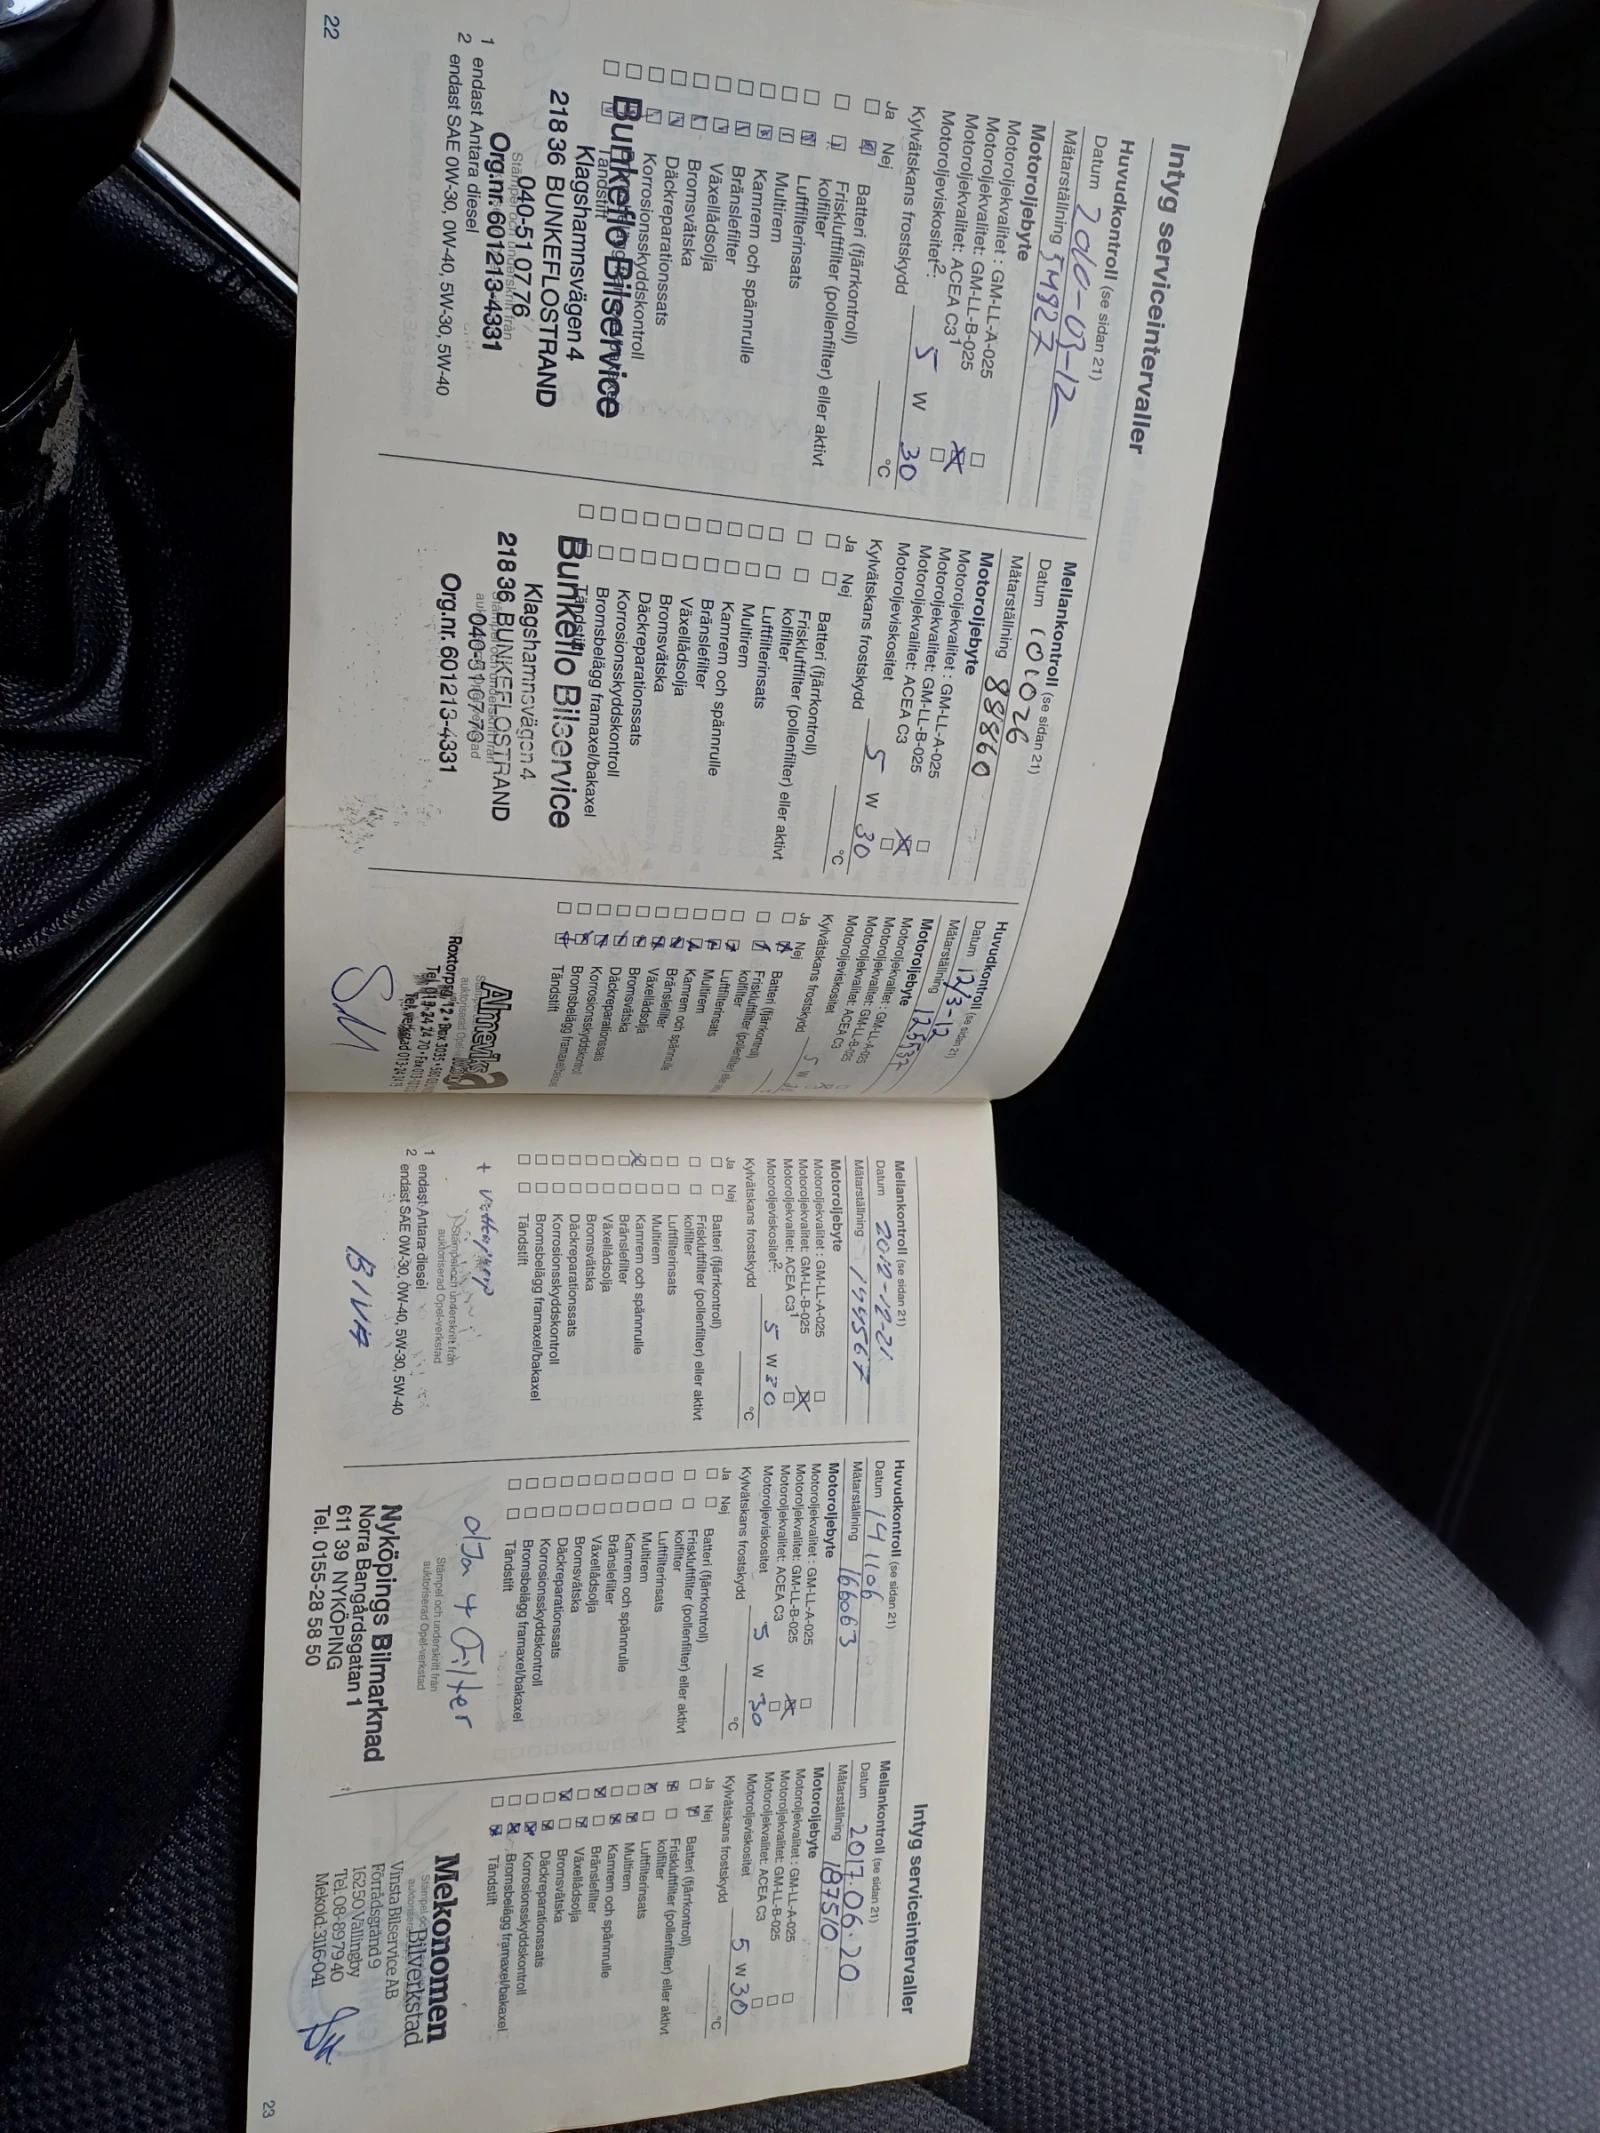 Intyg serviceintervaller
Huvudkontroll (se sidan 21)
Datum 2010-03-12
Mätarställning
Motoroljebyte
Motoroljekvalitet : GM-LL-A-025
Motoroljekvalitet: GM-LL-B-025
Motoroljekvalitet: ACEA C3 1
Motoroljeviskositet 2:
5 W 30
Kylvätskans frostskydd °C
Ja Nej
Batteri (fjärrkontroll)
Friskluftfilter (pollenfilter) eller aktivt
kolfilter
Luftfilterinsats
Multirem
Kamrem och spännrulle
Bränslefilter
Växellådsolja
Bromsvätska
Däckreparationssats
Korrosionsskyddskontroll
Tändstift
Bunkeflo Bilservice
Klagshamnsvägen 4
218 36 BUNKEFLOSTRAND
Stämpel och underskrift från
040-51 07 76
Org.nr. 601213-4331
1 endast Antara diesel
2 endast SAE 0W-30, 0W-40, 5W-30, 5W-40
22
Mellankontroll (se sidan 21)
Datum 101026
Mätarställning 88860
Motoroljebyte
Motoroljekvalitet : GM-LL-A-025
Motoroljekvalitet: GM-LL-B-025
Motoroljekvalitet: ACEA C3
Motoroljeviskositet
5 W 30
Kylvätskans frostskydd °C
Ja Nej
Batteri (fjärrkontroll)
Friskluftfilter (pollenfilter) eller aktivt
kolfilter
Luftfilterinsats
Multirem
Kamrem och spännrulle
Bränslefilter
Växellådsolja
Bromsvätska
Däckreparationssats
Korrosionsskyddskontroll
Bromsbelägg framaxel/bakaxel
Tändstift
Bunkeflo Bilservice
Klagshamnsvägen 4
218 36 BUNKEFLOSTRAND
Org.nr. 601213-4331
Huvudkontroll (se sidan 21)
Datum 12/3-12
Mätarställning 125537
Motoroljebyte
Motoroljekvalitet : GM-LL-A-025
Motoroljekvalitet: GM-LL-B-025
Motoroljekvalitet: ACEA C3
Motoroljeviskositet
5 W
Kylvätskans frostskydd
Ja Nej
Batteri (fjärrkontroll)
Friskluftfilter (pollenfilter)
kolfilter
Luftfilterinsats
Multirem
Kamrem och spännrulle
Bränslefilter
Växellådsolja
Bromsvätska
Däckreparationssats
Korrosionsskyddskontroll
Bromsbelägg
Tändstift
Almeviks
Roxtorpsg. 12 • Box 3035
Mellankontroll (se sidan 21)
Datum 2012-12-21
Mätarställning 144567
Motoroljebyte
Motoroljekvalitet : GM-LL-A-025
Motoroljekvalitet: GM-LL-B-025
Motoroljekvalitet: ACEA C3 1
Motoroljeviskositet 2:
5 W 30
Kylvätskans frostskydd °C
Ja Nej
Batteri (fjärrkontroll)
Friskluftfilter (pollenfilter) eller aktivt
kolfilter
Luftfilterinsats
Multirem
Kamrem och spännrulle
Bränslefilter
Växellådsolja
Bromsvätska
Däckreparationssats
Korrosionsskyddskontroll
Bromsbelägg framaxel/bakaxel
Tändstift
+ vattenpump
Stämpel och underskrift från
auktoriserad Opel-verkstad
1 endast Antara diesel
2 endast SAE 0W-30, 0W-40, 5W-30, 5W-40
Huvudkontroll (se sidan 21)
Datum 141106
Mätarställning 166063
Motoroljebyte
Motoroljekvalitet : GM-LL-A-025
Motoroljekvalitet: GM-LL-B-025
Motoroljekvalitet: ACEA C3
Motoroljeviskositet
5 W 30
Kylvätskans frostskydd °C
Ja Nej
Batteri (fjärrkontroll)
Friskluftfilter (pollenfilter) eller aktivt
kolfilter
Luftfilterinsats
Multirem
Kamrem och spännrulle
Bränslefilter
Växellådsolja
Bromsvätska
Däckreparationssats
Korrosionsskyddskontroll
Bromsbelägg framaxel/bakaxel
Tändstift
olja + Filter
Stämpel och underskrift från
auktoriserad Opel-verkstad
Nyköpings Bilmarknad
Norra Bangårdsgatan 1
611 39 NYKÖPING
Tel. 0155-28 58 50
Intyg serviceintervaller
Mellankontroll (se sidan 21)
Datum 2017.06.20
Mätarställning 187510
Motoroljebyte
Motoroljekvalitet : GM-LL-A-025
Motoroljekvalitet: GM-LL-B-025
Motoroljekvalitet: ACEA C3
Motoroljeviskositet
5 W 30
Kylvätskans frostskydd °C
Ja Nej
Batteri (fjärrkontroll)
Friskluftfilter (pollenfilter) eller aktivt
kolfilter
Luftfilterinsats
Multirem
Kamrem och spännrulle
Bränslefilter
Växellådsolja
Bromsvätska
Däckreparationssats
Korrosionsskyddskontroll
Bromsbelägg framaxel/bakaxel
Tändstift
Mekonomen
Bilverkstad
Vinsta Bilservice AB
Förrådsgränd 9
162 50 Vällingby
Tel. 08-89 79 40
MekoId: 3116-041
23